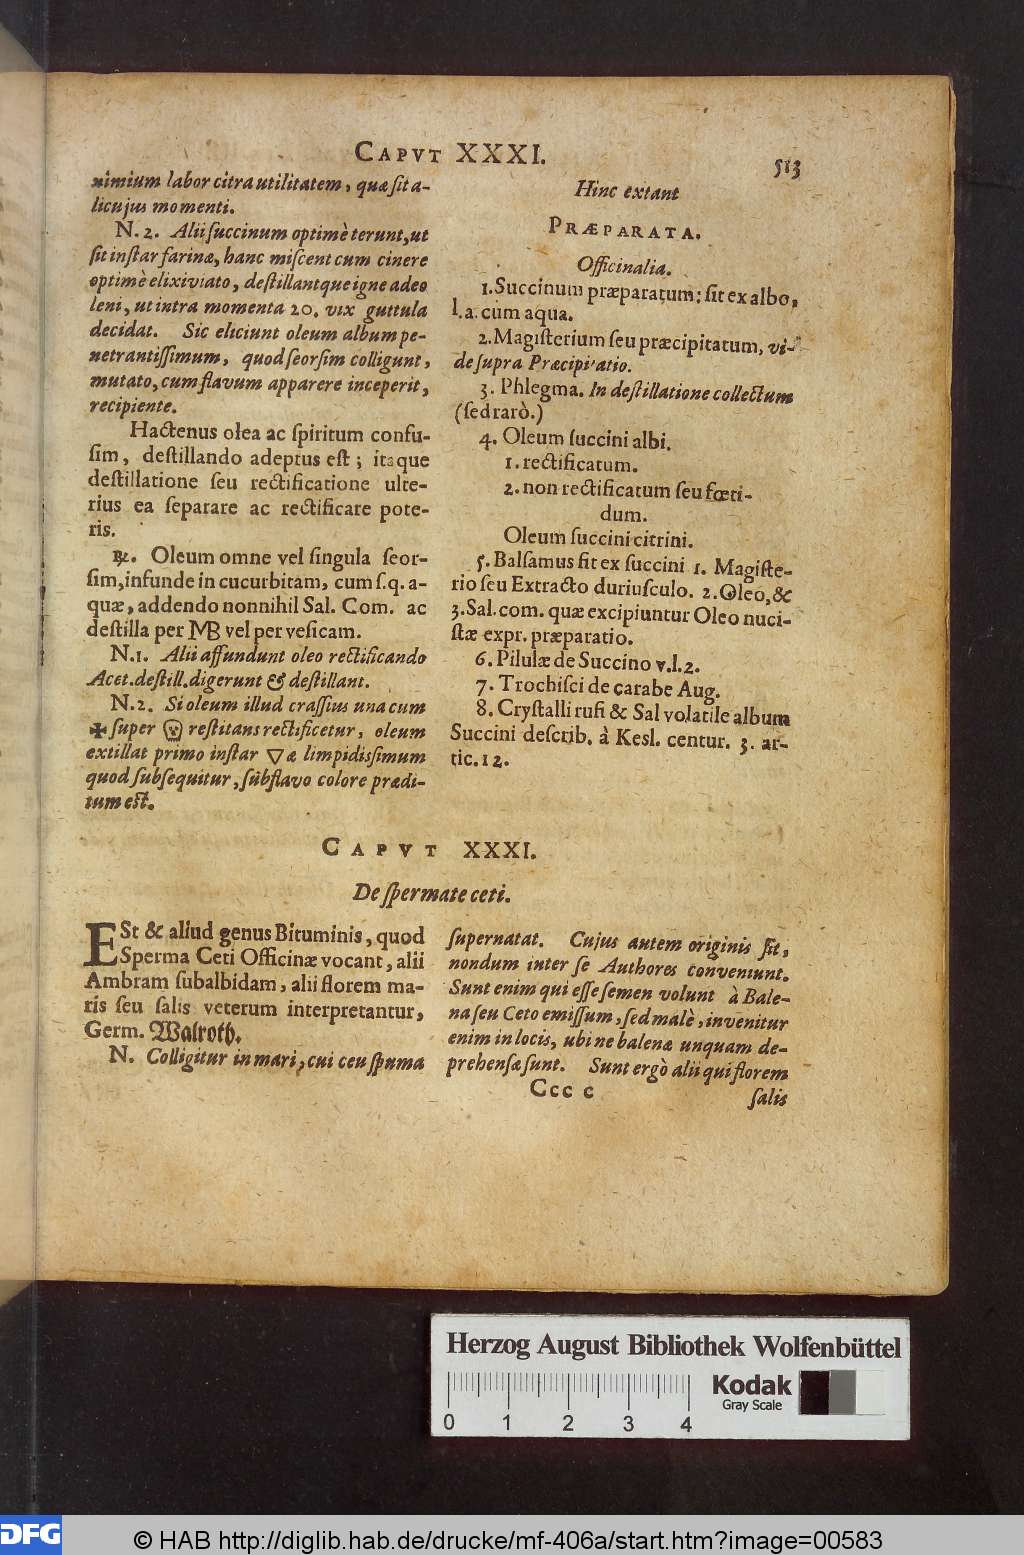 CAPVT XXXI.
513
nimium labor citra utilitatem, quæ sit a-
licujus momenti.
N. 2. Alii succinum optimè terunt, ut
sit instar farinæ, hanc miscent cum cinere
optimè elixiviato, destillantque igne adeo
leni, ut intra momenta 20. vix guttula
decidat. Sic eliciunt oleum album pe-
netrantissimum, quod seorsim colligunt,
mutato, cum flavum apparere inceperit,
recipiente.
Hactenus olea ac spiritum confu-
sim, destillando adeptus est; itaque
destillatione seu rectificatione ulte-
rius ea separare ac rectificare pote-
ris.
℞. Oleum omne vel singula seor-
sim, infunde in cucurbitam, cum s.q. a-
quæ, addendo nonnihil Sal. Com. ac
destilla per MB vel per vesicam.
N.1. Alii affundunt oleo rectificando
Acet. destill. digerunt & destillant.
N.2. Si oleum illud crassius una cum
✠ super restitans rectificetur, oleum
extillat primo instar ▽æ limpidissimum
quod subsequitur, subflavo colore prædi-
tum est.
Hinc extant
PRÆPARATA.
Officinalia.
1. Succinum præparatum: fit ex albo,
l. a. cum aqua.
2. Magisterium seu præcipitatum, vi-
de supra Præcipitatio.
3. Phlegma. In destillatione collectum
(sed rarò.)
4. Oleum succini albi.
1. rectificatum.
2. non rectificatum seu fœti-
dum.
Oleum succini citrini.
5. Balsamus fit ex succini 1. Magiste-
rio seu Extracto duriusculo. 2. Oleo, &
3. Sal. com. quæ excipiuntur Oleo nuci-
stæ expr. præparatio.
6. Pilulæ de Succino v.l.2.
7. Trochisci de carabe Aug.
8. Crystalli rufi & Sal volatile album
Succini describ. à Kesl. centur. 3. ar-
tic. 12.
CAPVT XXXI.
De spermate ceti.
ESt & aliud genus Bituminis, quod
Sperma Ceti Officinæ vocant, alii
Ambram subalbidam, alii florem ma-
ris seu salis veterum interpretantur,
Germ. Walroth.
N. Colligitur in mari, cui ceu spuma
supernatat. Cujus autem originis sit,
nondum inter se Authores conveniunt.
Sunt enim qui esse semen volunt à Bale-
na seu Ceto emissum, sed malè, invenitur
enim in locis, ubi ne balenæ unquam de-
prehensæ sunt. Sunt ergò alii qui florem
Ccc c
salis
Herzog August Bibliothek Wolfenbüttel
Kodak
Gray Scale
0 1 2 3 4
DFG
© HAB http://diglib.hab.de/drucke/mf-406a/start.htm?image=00583